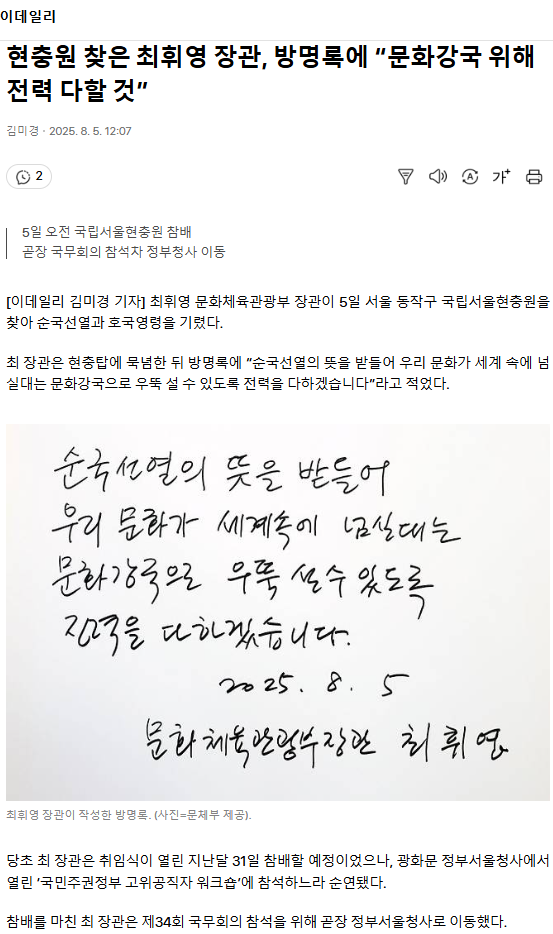 이데일리
현충원 찾은 최휘영 장관, 방명록에 “문화강국 위해
전력 다할 것”
김미경 · 2025. 8. 5. 12:07
2
가+
5일 오전 국립서울현충원 참배
곧장 국무회의 참석차 정부청사 이동
[이데일리 김미경 기자] 최휘영 문화체육관광부 장관이 5일 서울 동작구 국립서울현충원을
찾아 순국선열과 호국영령을 기렸다.
최 장관은 현충탑에 묵념한 뒤 방명록에 “순국선열의 뜻을 받들어 우리 문화가 세계 속에 넘
실대는 문화강국으로 우뚝 설 수 있도록 전력을 다하겠습니다”라고 적었다.
순국선열의 뜻을 받들어
우리 문화가 세계속에 넘실대는
문화강국으로 우뚝 설 수 있도록
전력을 다하겠습니다.
2025. 8. 5
문화체육관광부장관 최휘영
최휘영 장관이 작성한 방명록. (사진=문체부 제공).
당초 최 장관은 취임식이 열린 지난달 31일 참배할 예정이었으나, 광화문 정부서울청사에서
열린 ‘국민주권정부 고위공직자 워크숍’에 참석하느라 순연됐다.
참배를 마친 최 장관은 제34회 국무회의 참석을 위해 곧장 정부서울청사로 이동했다.